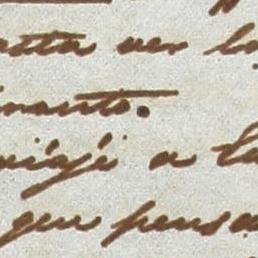 asta ver lo
inante.
viaje a la
que pensa